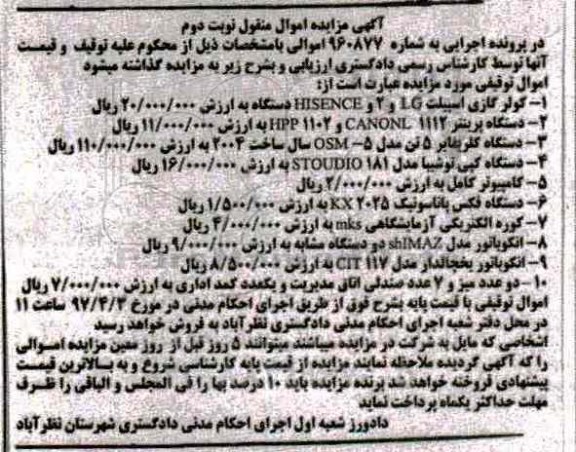 آگهی مزایده اموال منقول نوبت دوم
در پرونده اجرایی به شماره ۹۶۰۸۷۷ اموالی بامشخصات ذیل از محکوم علیه توقیف و قیمت
آنها توسط کارشناس رسمی دادگستری ارزیابی و بشرح زیر به مزایده گذاشته میشود
اموال توقیفی مورد مزایده عبارت است از:
۱– کولر گازی اسپیلت LG و ۲ و HISENCE دستگاه به ارزش ۲۰/۰۰۰/۰۰۰ ریال
۲– دستگاه پرینتر CANONL ۱۱۱۲ و HPP ۱۱۰۲ به ارزش ۱۱/۰۰۰/۰۰۰ ریال
۳– دستگاه گلریفایر ۵ تن مدل OSM –۵ سال ساخت ۲۰۰۴ به ارزش ۱۱۰/۰۰۰/۰۰۰ ریال
۴– دستگاه کپی توشیبا مدل STOUDIO ۱۸۱ به ارزش ۱۶/۰۰۰/۰۰۰ ریال
۵– کامپیوتر کامل به ارزش ۲/۰۰۰/۰۰۰ ریال
۶– دستگاه فکس پاناسونیک KX ۲۰۲۵ به ارزش ۱/۵۰۰/۰۰۰ ریال
۷– کوره الکتریکی آزمایشگاهی mks به ارزش ۴/۰۰۰/۰۰۰ ریال
۸– انکوباتور مدل shIMAZ دو دستگاه مشابه به ارزش ۹/۰۰۰/۰۰۰ ریال
۹– انکوباتور یخچالدار مدل CIT ۱۱۷ به ارزش ۸/۵۰۰/۰۰۰ ریال
۱۰– دو عدد میز و ۷ عدد صندلی اتاق مدیریت و یکعدد کمد اداری به ارزش ۷/۰۰۰/۰۰۰ ریال
اموال توقیفی با قیمت پایه بشرح فوق از طریق اجرای احکام مدنی در مورخ ۹۷/۴/۳ ساعت ۱۱
در محل دفتر شعبه اجرای احکام مدنی دادگستری نظرآباد به فروش خواهد رسید
اشخاصی که مایل به شرکت در مزایده میباشند میتوانند ۵ روز قبل از روز معین مزایده اموالی
را که آگهی گردیده ملاحظه نمایند مزایده از قیمت پایه کارشناسی شروع و به بالاترین قیمت
پیشنهادی فروخته خواهد شد برنده مزایده باید ۱۰ درصد بها را فی المجلس و الباقی را ظرف
مهلت حداکثر یکماه پرداخت نماید
دادورز شعبه اول اجرای احکام مدنی دادگستری شهرستان نظرآباد